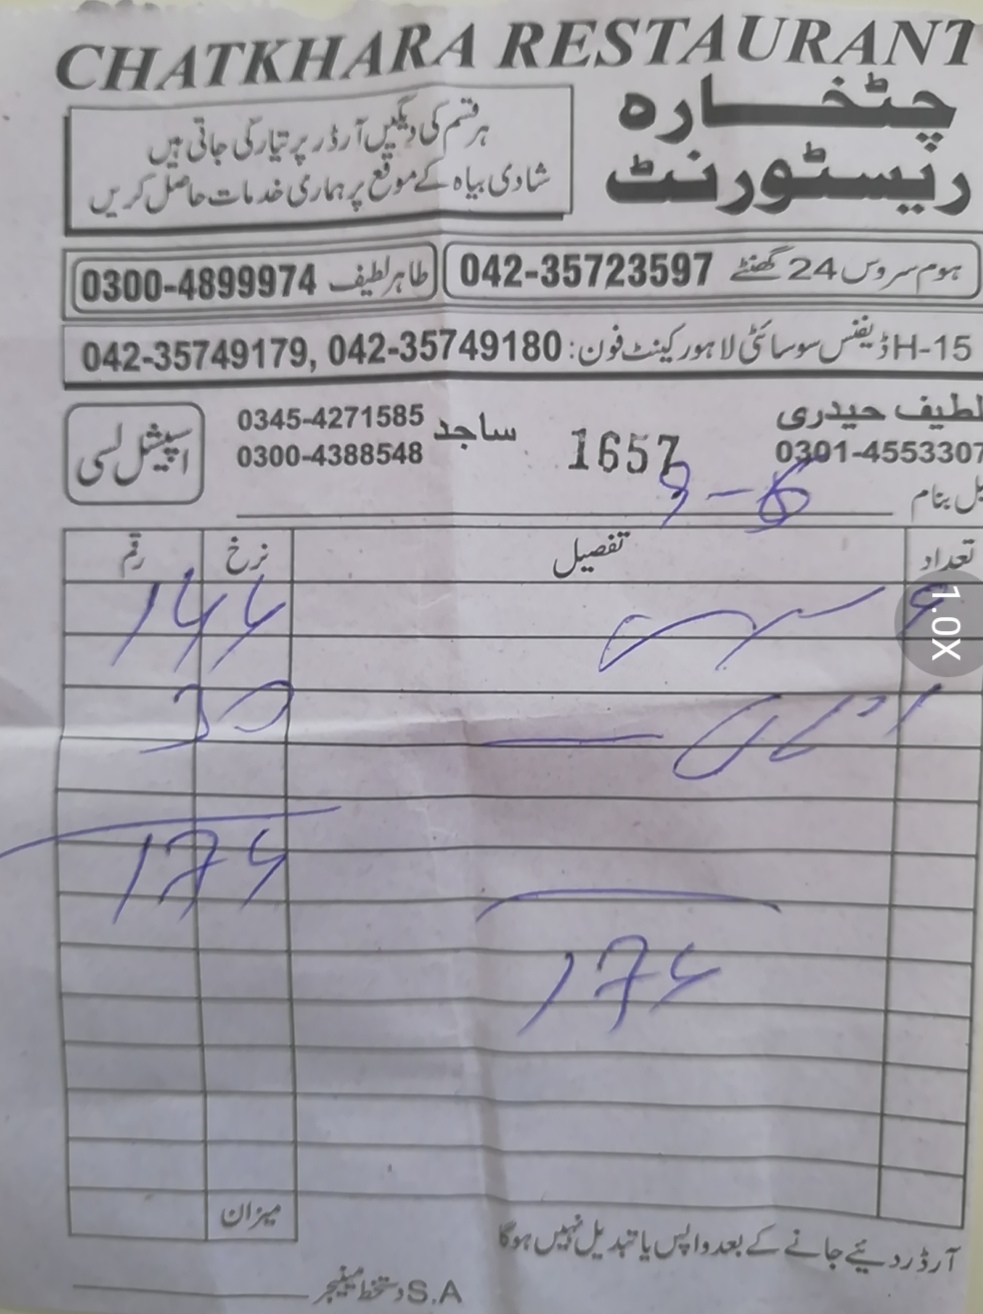 CHATKHARA RESTAURANT
چٹخارہ
ریسٹورنٹ
ہر قسم کی دیگیں آرڈر پر تیار کی جاتی ہیں
شادی بیاہ کے موقع پر ہماری خدمات حاصل کریں
ہوم سروس 24 گھنٹے 042-35723597
طاہر لطیف 0300-4899974
H-15 ڈیفنس سوسائٹی لاہور کینٹ فون: 042-35749179, 042-35749180
لطیف حیدری
0301-4553307
1657
ساجد 0345-4271585
0300-4388548
اسپیشل لسی
بل بنام
تعداد تفصیل نرخ رقم
30
میزان
آرڈر دیئے جانے کے بعد واپس یا تبدیل نہیں ہوگا
S.A دستخط مینیجر
1.0X